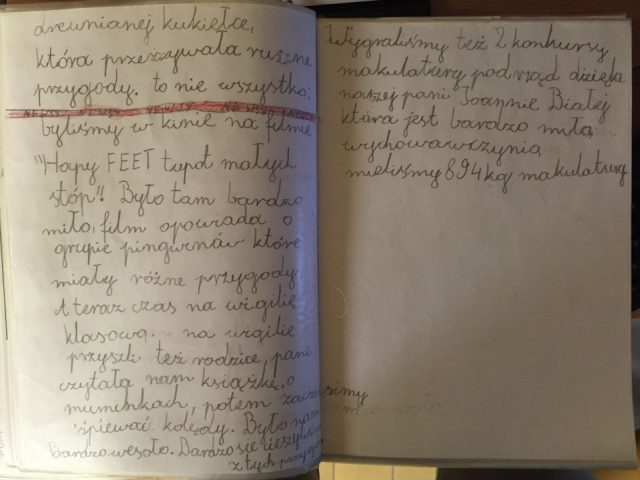 drewnianej kukiełce,
która przeżywała rużne
przygody. to nie wszystko:
byliśmy w kinie na filmie
"Hapy FEET tupot małych
stóp". Było tam bardzo
miło, film opowiada o
grupie pingwinów które
miały różne przygody.
A teraz czas na wigilie
klasową. na wigilie
przyszli też rodzice, pani
czytała nam książkę o
muminkach, potem zaczeliśmy
śpiewać kolędy. Było nam
Bardzo wesoło. Bardzo się cieszyliśmy
z tych przygód
Wygraliśmy też 2 konkursy
makulatury pod rząd dzięki
naszej pani Joannie Białej
która jest bardzo miłą
wychowawczynią.
mieliśmy 894kg makulatury